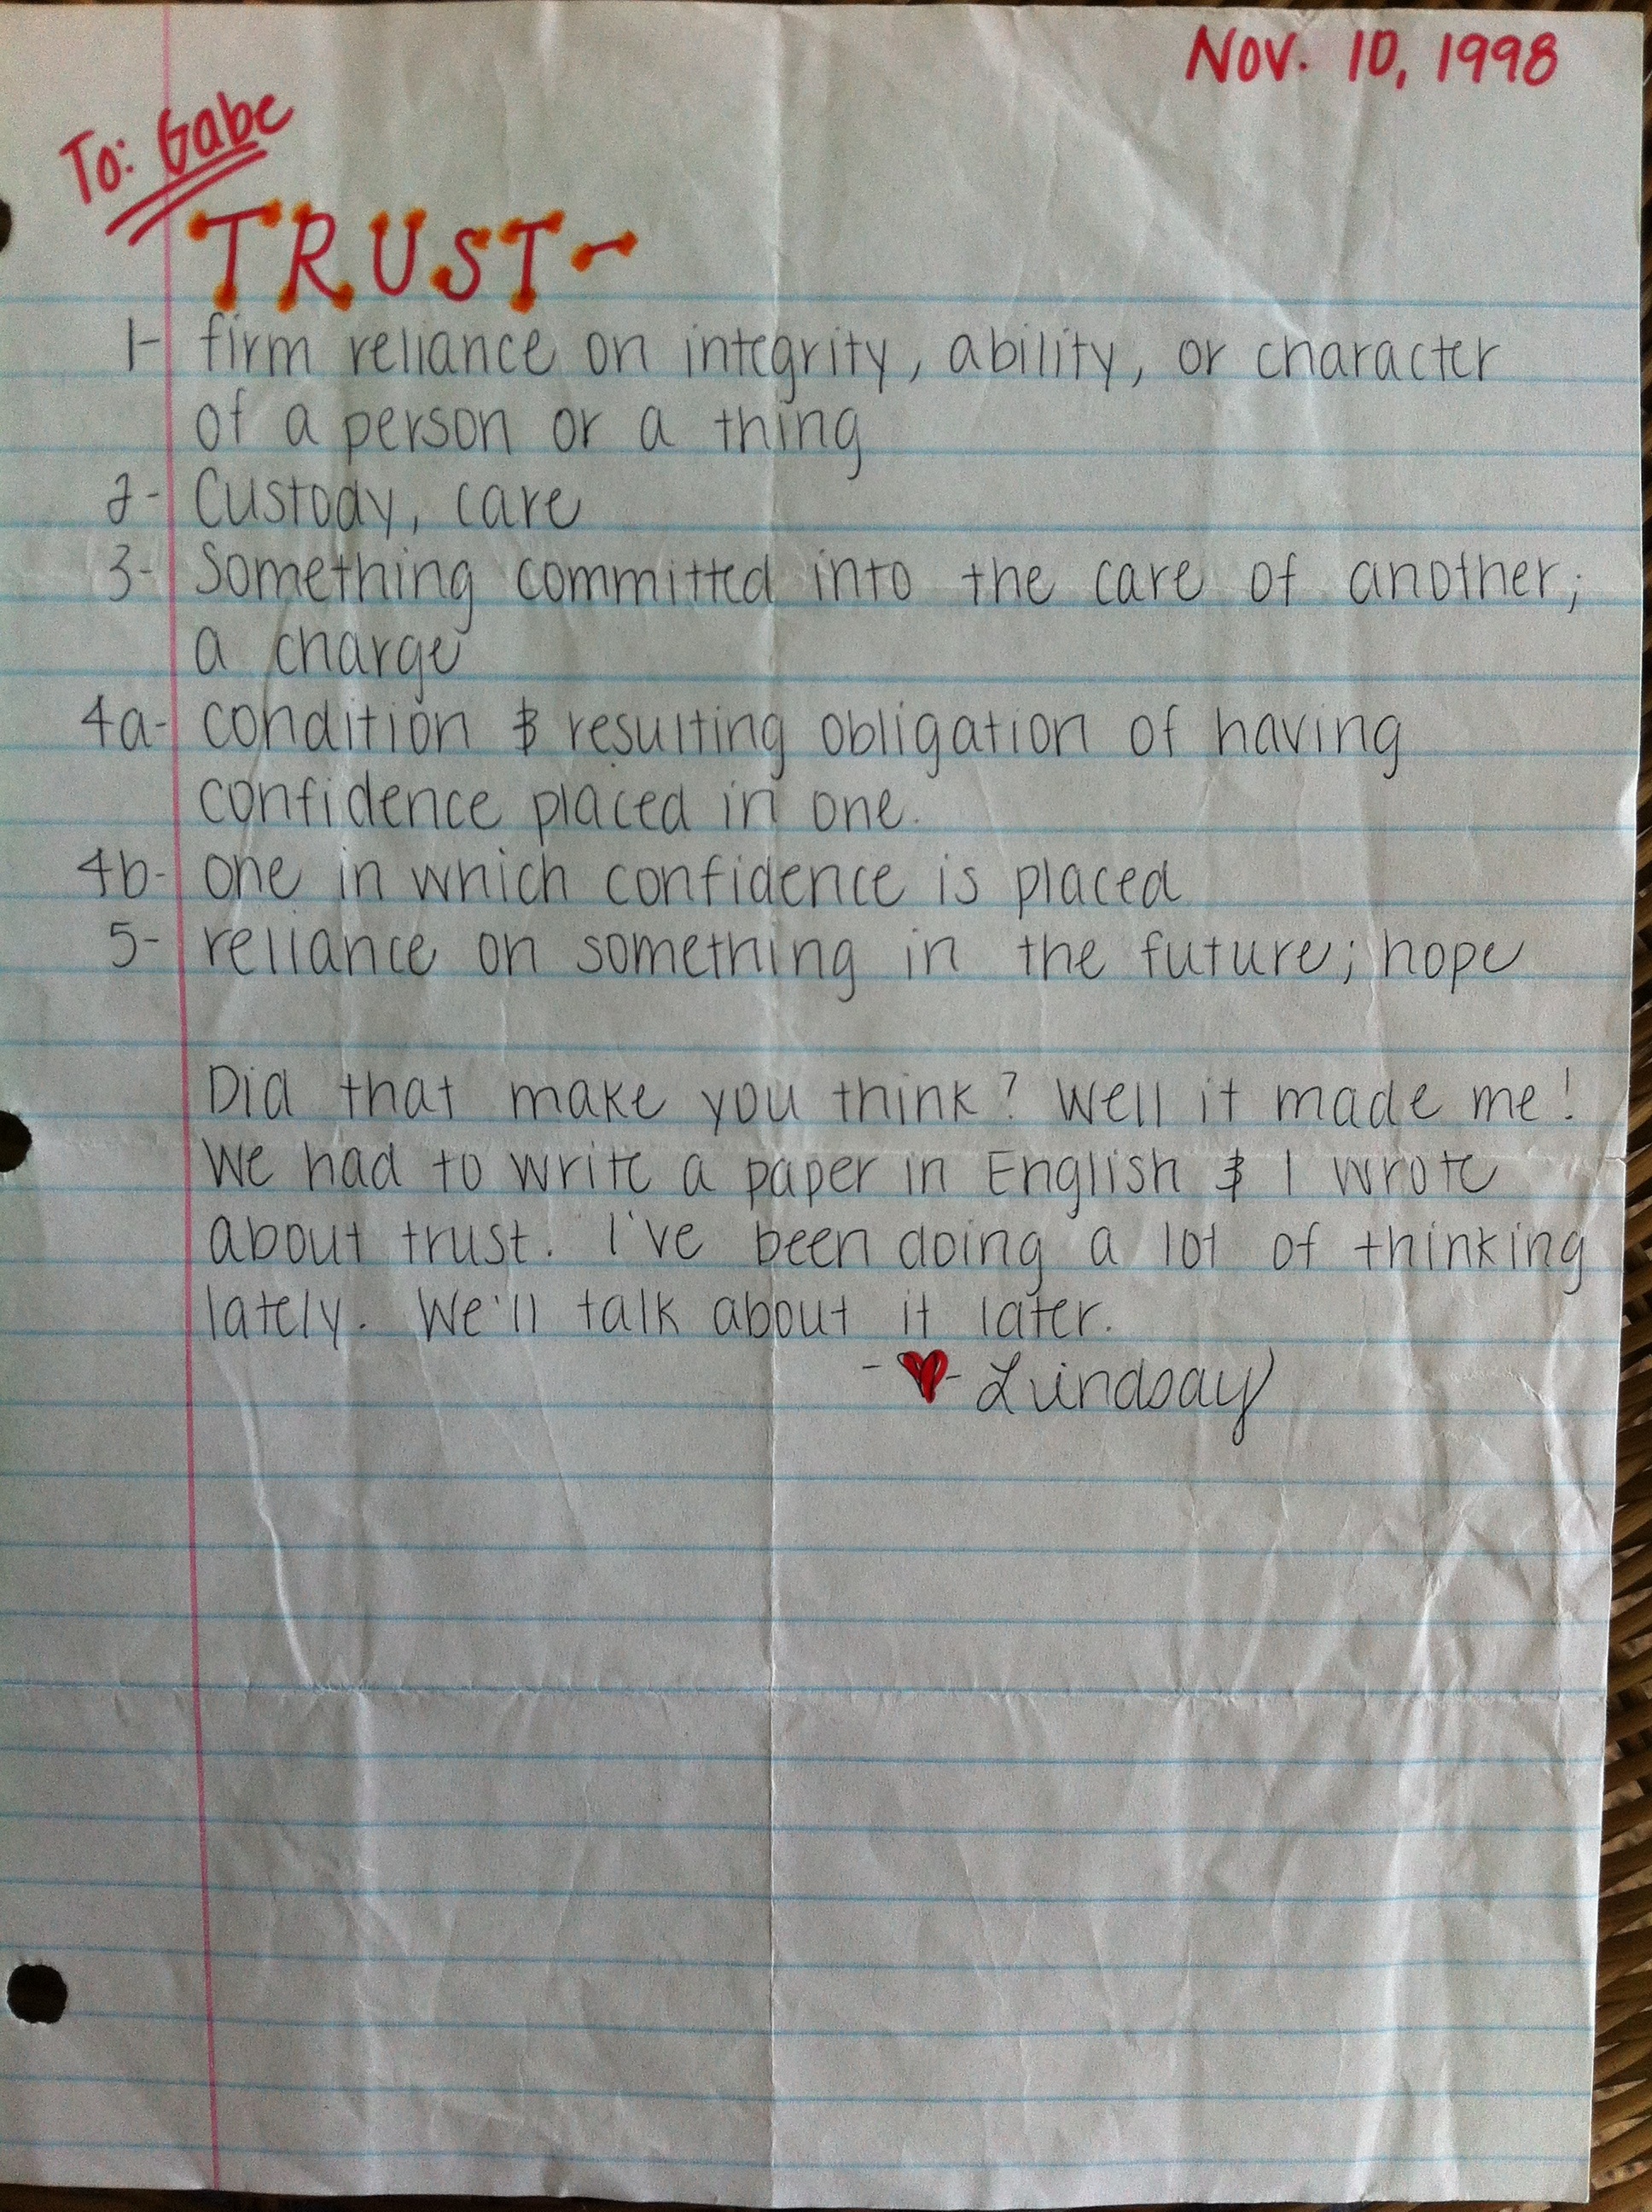 Nov. 10, 1998
To: Gabe
TRUST-
1- firm reliance on integrity, ability, or character
of a person or a thing
2- Custody, care
3- Something committed into the care of another;
a charge
4a- condition & resulting obligation of having
confidence placed in one.
4b- one in which confidence is placed
5- reliance on something in the future; hope
Did that make you think? Well it made me!
We had to write a paper in English & I wrote
about trust. I've been doing a lot of thinking
lately. We'll talk about it later.
-♥- Lindsay